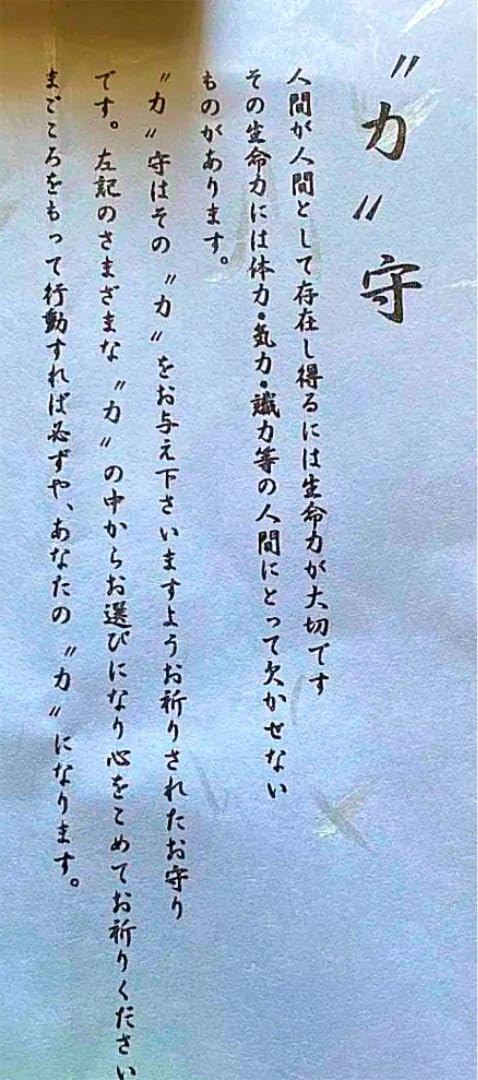 〃力〃守
人間が人間として存在し得るには生命力が大切です
その生命力には体力・気力・識力等の人間にとって欠かせない
ものがあります。
〃力〃守はその〃力〃をお与え下さいますようお祈りされたお守り
です。左記のさまざまな〃力〃の中からお選びになり心をこめてお祈りください
まごころをもって行動すれば必ずや、あなたの〃力〃になります。